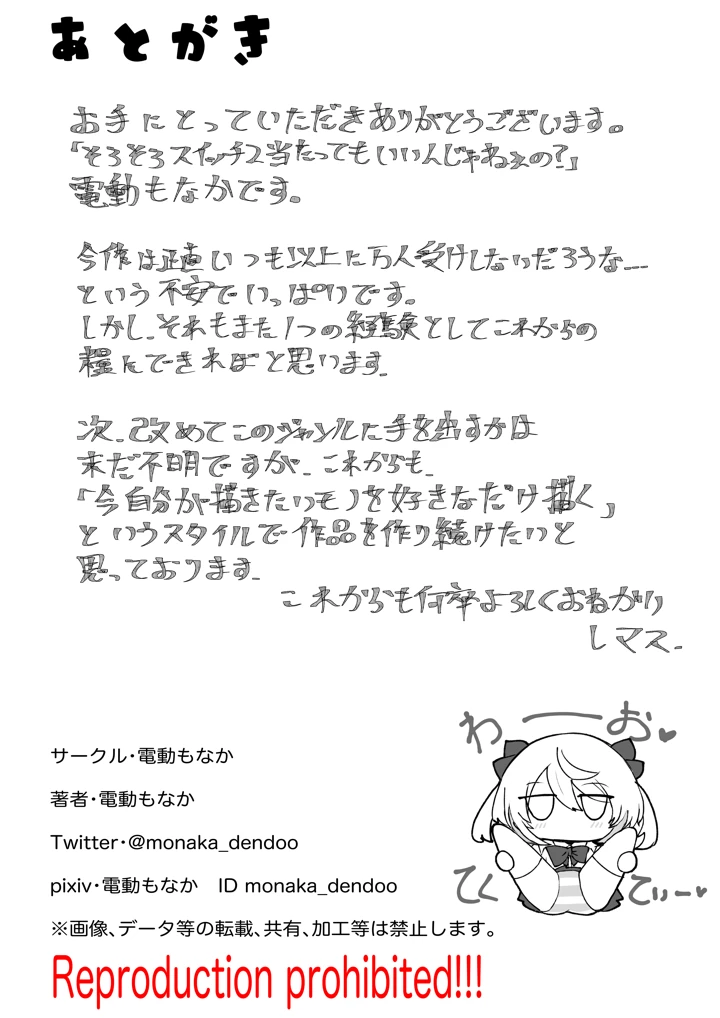 あとがき
お手にとっていただきありがとうございます。
「そろそろスイッチ2当たってもいいんじゃねぇの?」
電動もなかです。
今作は正直いつも以上に万人受けしないだろうな...
という不安でいっぱいです。
しかし、それもまた1つの経験としてこれからの
糧にできればと思います。
次、改めてこのジャンルに手を出すかは
未だ不明ですが、これからも、
「今自分が描きたいモノを好きなだけ描く」
というスタイルで作品を作り続けたいと
思っております。
これからも何卒よろしくおねがい
しマス。
わーお♥
てくてぃー♥
サークル・電動もなか
著者・電動もなか
Twitter・@monaka_dendoo
pixiv・電動もなか　ID monaka_dendoo
※画像、データ等の転載、共有、加工等は禁止します。
Reproduction prohibited!!!